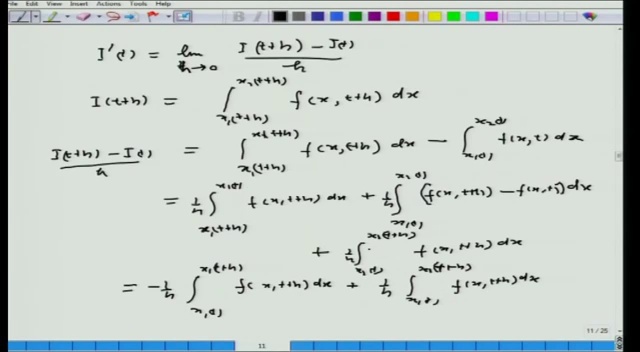 View Insert Actions Tools Help
I'(t) = lim_{h→0} (I(t+h) − I(t))/h
I(t+h) = ∫_{x₁(t+h)}^{x₂(t+h)} f(x, t+h) dx
(I(t+h) − I(t))/h = ∫_{x₁(t+h)}^{x₂(t+h)} f(x, t+h) dx − ∫_{x₁(t)}^{x₂(t)} f(x, t) dx
= 1/h ∫_{x₁(t+h)}^{x₁(t)} f(x, t+h) dx + 1/h ∫_{x₁(t)}^{x₂(t)} (f(x, t+h) − f(x, t)) dx
+ 1/h ∫_{x₂(t)}^{x₂(t+h)} f(x, t+h) dx
= −1/h ∫_{x₁(t)}^{x₁(t+h)} f(x, t+h) dx + 1/h ∫_{x₂(t)}^{x₂(t+h)} f(x, t+h) dx
11 / 25
11